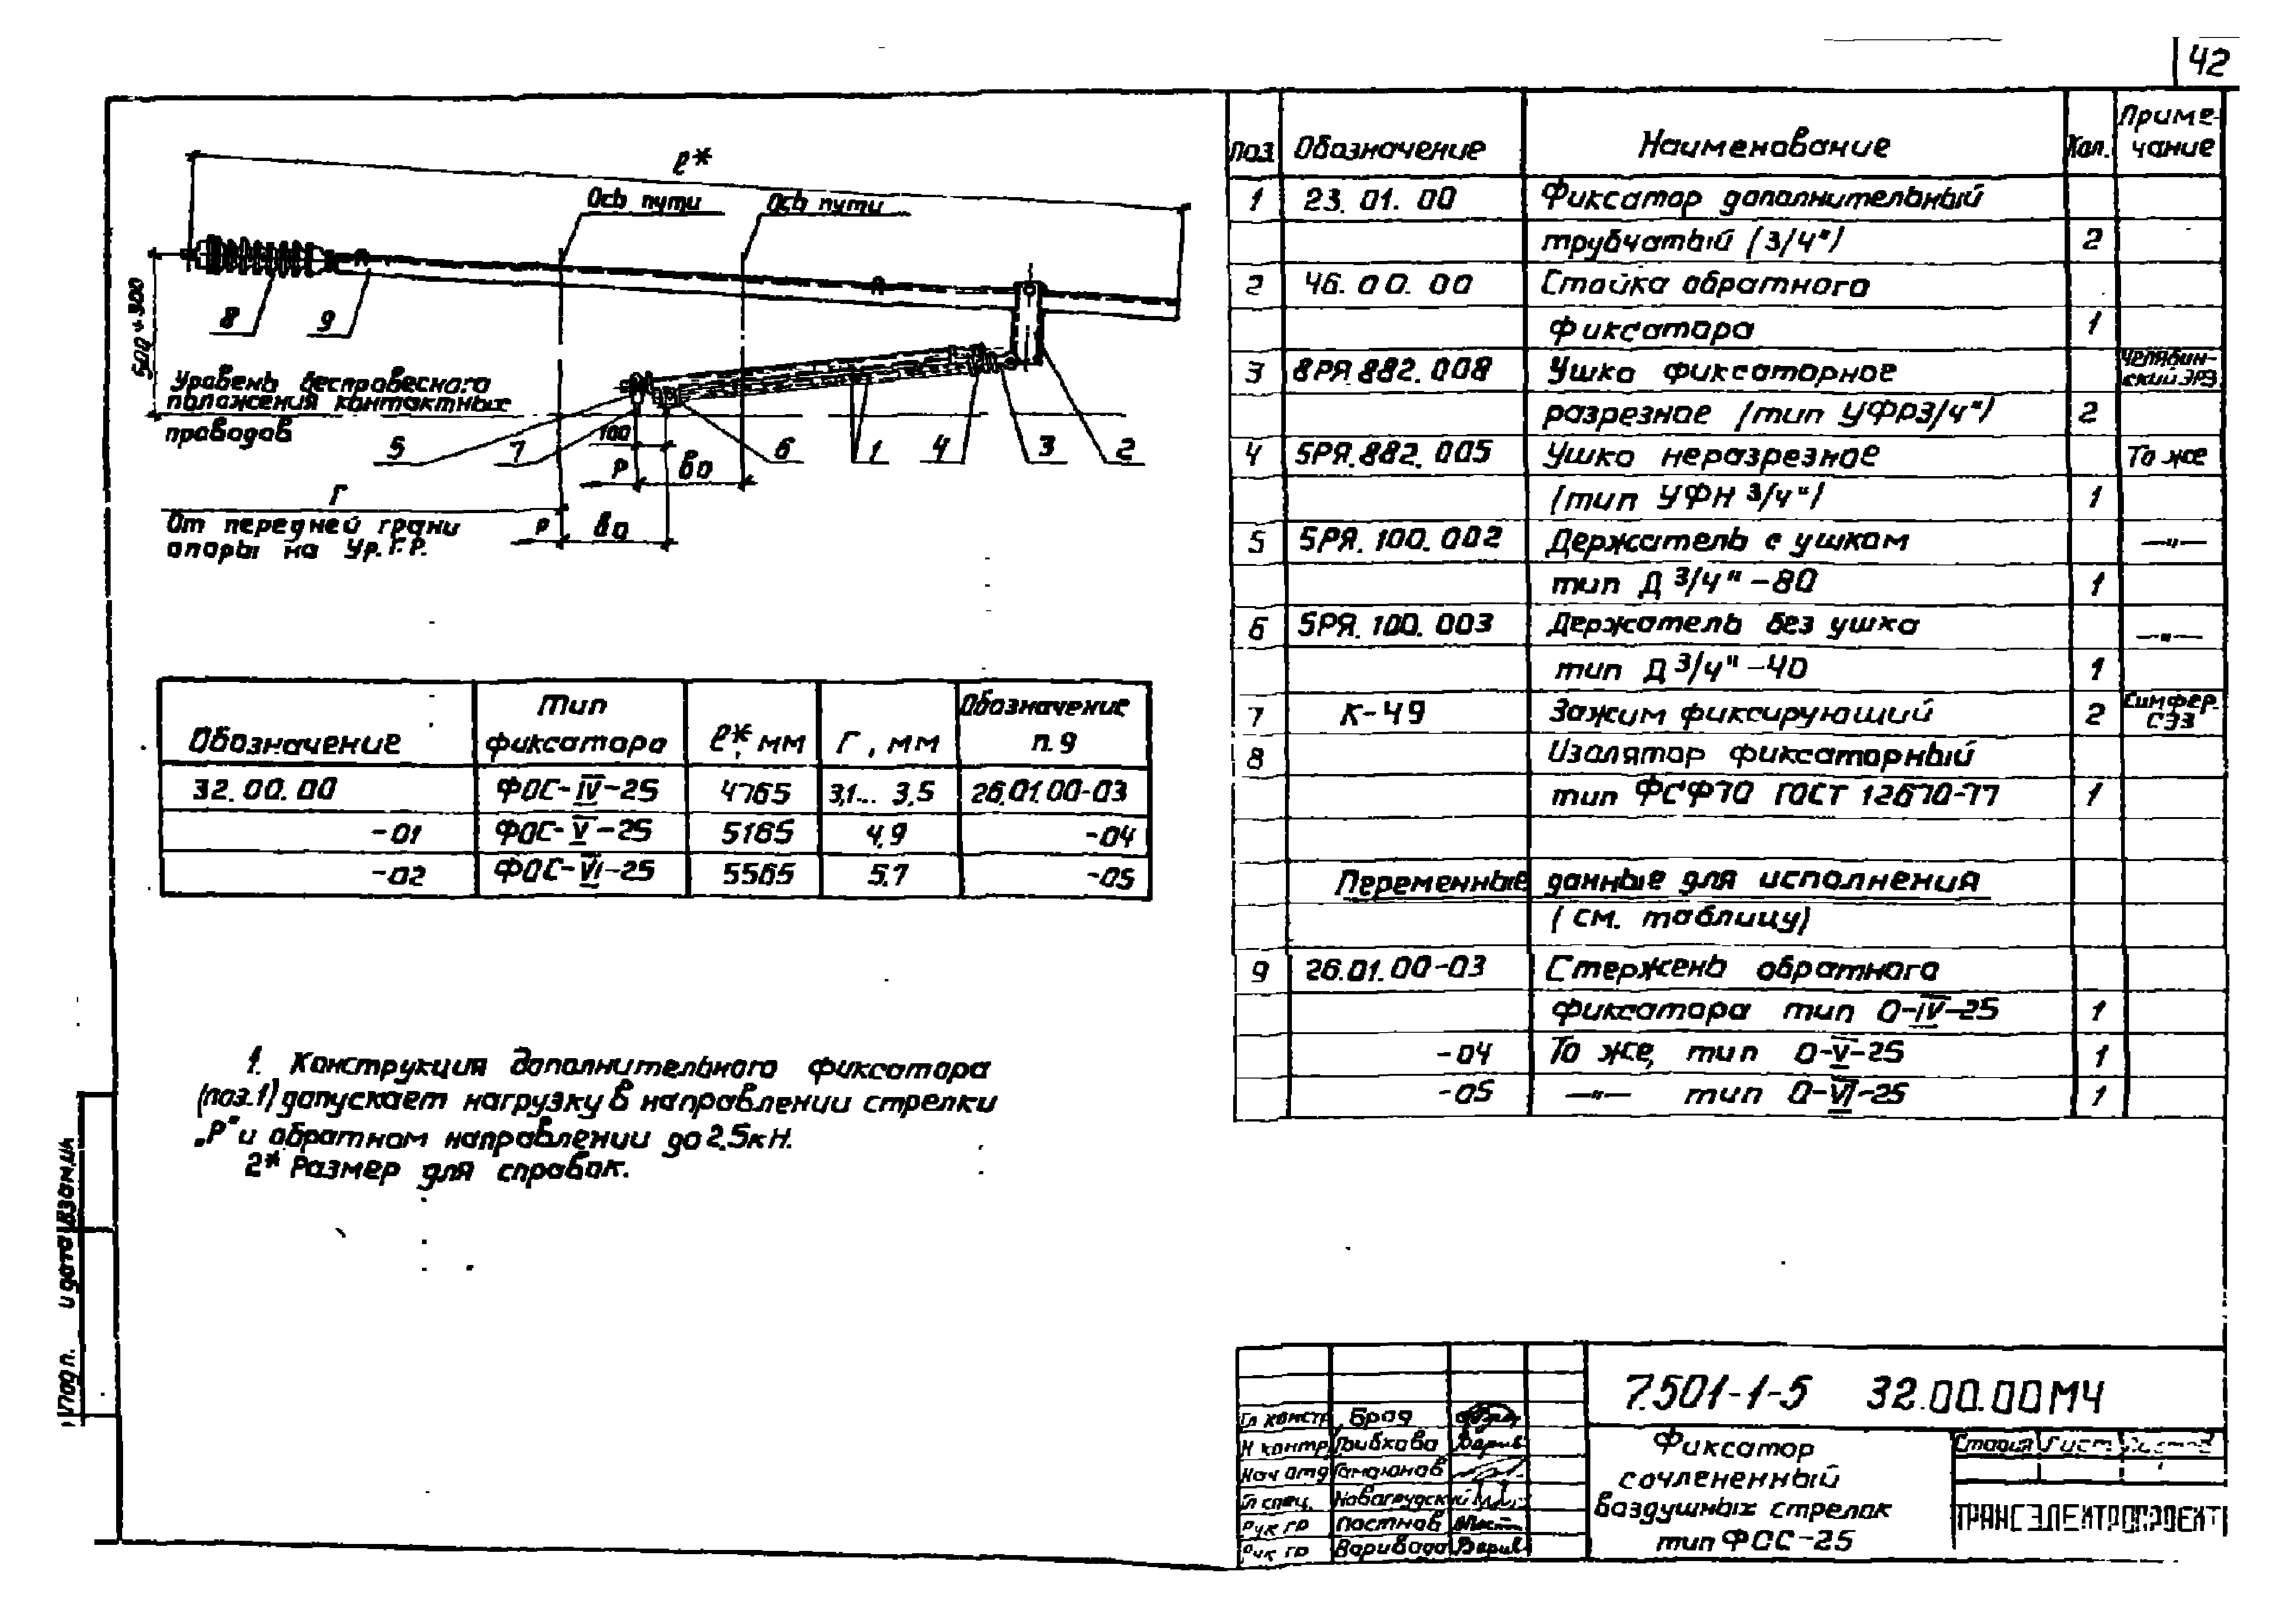 42
ℓ*
Ось пути
Ось пути
500÷300
8
9
Уровень беспровесного
положения контактных
проводов
100
5
7
6
1
4
3
2
Р
во
Г
От передней грани
опоры на Ур.Г.Р.
Р
во
Обозначение
Тип фиксатора
ℓ*, мм
Г, мм
Обозначение п.9
32.00.00 ФОС-IV-25 4765 3,1... 3,5 26.01.00-03
-01 ФОС-V-25 5165 4,9 -04
-02 ФОС-VI-25 5565 5,7 -05
1. Конструкция дополнительного фиксатора
(поз.1) допускает нагрузку в направлении стрелки
„Р" и обратном направлении до 2,5кН.
2* Размер для справок.
Поз. Обозначение Наименование Кол. Приме-
чание
1 23.01.00 Фиксатор дополнительный
трубчатый (3/4") 2
2 46.00.00 Стойка обратного
фиксатора 1
3 8РЯ.882.008 Ушко фиксаторное Челябин-
ский ЭРЗ
разрезное (тип УФР3/4") 2
4 5РЯ.882.005 Ушко неразрезное То же
(тип УФН 3/4") 1
5 5РЯ.100.002 Держатель с ушком —"—
тип Д 3/4"-80 1
6 5РЯ.100.003 Держатель без ушка —"—
тип Д 3/4"-40 1
7 К-49 Зажим фиксирующий 2 Симфер.
СЭЗ
8 Изолятор фиксаторный
тип ФСФ70 ГОСТ 12670-77 1
Переменные данные для исполнения
(см. таблицу)
9 26.01.00-03 Стержень обратного
фиксатора тип О-IV-25 1
-04 То же, тип О-V-25 1
-05 —"— тип О-VI-25 1
Подп. и дата
Взам.ин
7.501-1-5 32.00.00МЧ
Гл констр. Брод
Н контр.
Нач отд Гамаюнов
Гл спец. Новогрудский
Рук гр Постнов
Рук гр Варивода
Фиксатор
сочлененный
воздушных стрелок
тип ФОС-25
Стадия Лист Листов
ТРАНСЭЛЕКТРОПРОЕКТ